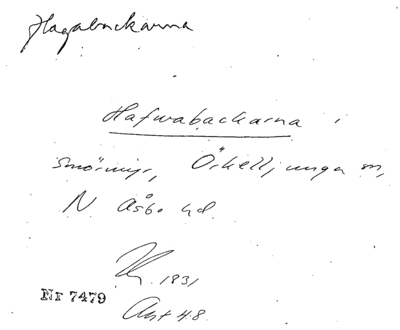 Hagabackarna
Hafwabackarna i
Smörmyr, Örkelljunga sn,
N Åsbo hd.
1831
Nr 7479
Akt 48